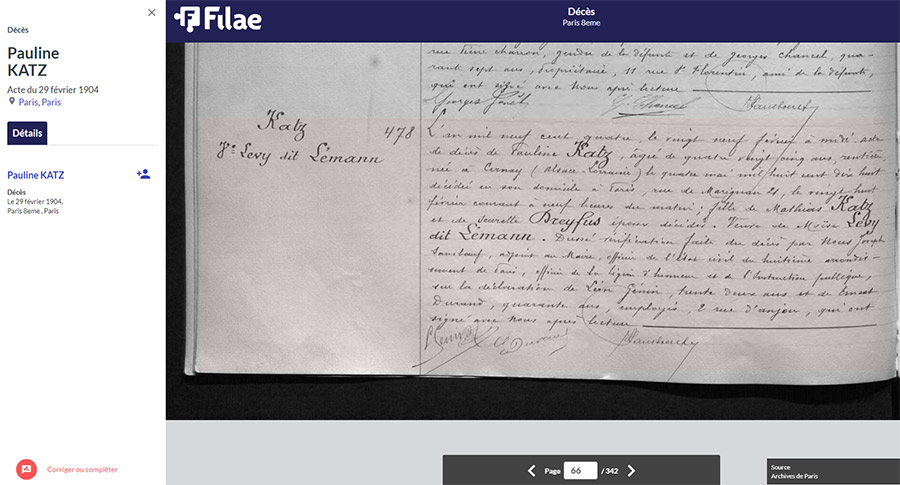 Décès
Pauline
KATZ
Acte du 29 février 1904
Paris, Paris
Détails
Pauline KATZ
Décès
Le 29 février 1904,
Paris 8eme , Paris
Corriger ou compléter
Filae
Décès
Paris 8eme
rue Pierre Charron, gendre de la défunte et de Georges Chancel, qua-
rante sept ans, propriétaire, 11 rue St Florentin, ami de la défunte,
qui ont signé avec nous après lecture
Katz
Ve Levy dit Lémann
478
L'an mil neuf cent quatre, le vingt neuf février à midi, acte
de décès de Pauline Katz, âgée de quatre vingt cinq ans, rentière
née à Cernay (Alsace-Lorraine) le quatre mai mil huit cent dix huit
décédée en son domicile à Paris, rue de Marignan 21, le vingt huit
février courant à neuf heures du matin; fille de Mathias Katz
et de Dreyfus époux décédés. Veuve de Moïse Lévy
dit Lémann. Dressé vérification faite du décès par Nous Joseph
adjoint au Maire, officier de l'état civil du huitième arrondis-
sement de Paris, officier de la légion d'honneur et de l'Instruction publique,
sur la déclaration de Léon Génin, trente deux ans et de Ernest
Durand, quarante ans, employés, 2 rue d'anjou, qui ont
signé avec Nous après lecture
Page 66 / 342
Source
Archives de Paris